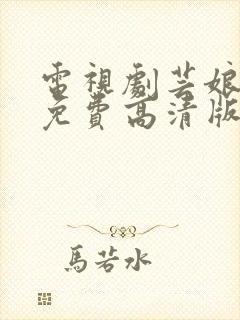 電視劇芸娘
免費高清版
馬若水